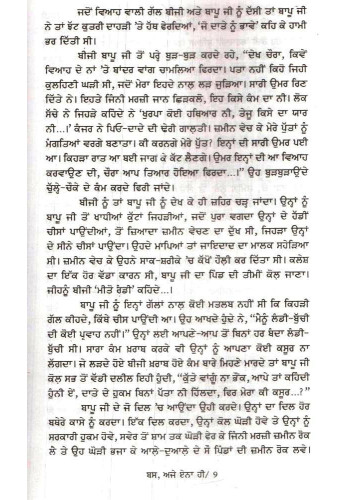 ਜਦੋਂ ਵਿਆਹ ਵਾਲੀ ਗੱਲ ਬੀਜੀ ਅਤੇ ਬਾਪੂ ਜੀ ਨੂੰ ਦੱਸੀ ਤਾਂ ਬਾਪੂ ਜੀ
ਨੇ ਤਾਂ ਝੱਟ ਕੁਤਰੀ ਦਾਹੜੀ 'ਤੇ ਹੱਥ ਫੇਰਦਿਆਂ, 'ਜੋ ਦਾਤੇ ਨੂੰ ਭਾਵੇਂ' ਕਹਿ ਕੇ ਹਾਮੀ
ਭਰ ਦਿੱਤੀ ਸੀ।
ਬੀਜੀ ਬਾਪੂ ਜੀ ਤੋਂ ਪਰ੍ਹੇ ਬੁੜ-ਬੁੜ ਕਰਦੇ ਰਹੇ, "ਦੇਖ ਚੌਰਾ, ਕਿਵੇਂ
ਵਿਆਹ ਦੇ ਨਾਂ 'ਤੇ ਬਾਂਦਰ ਵਾਂਗ ਚਾਮਲਿਆ ਫਿਰਦਾ। ਪਤਾ ਨਹੀਂ ਕਿਹੋ ਜਿਹੀ
ਕੁਲਹਿਣੀ ਘੜੀ ਸੀ, ਜਦੋਂ ਮੇਰਾ ਇਹਦੇ ਨਾਲ ਲੜ ਜੁੜਿਆ। ਸਾਰੀ ਉਮਰ ਰਿਣ
ਦਿੱਤੇ ਨੇ। ਇਹਤੇ ਜਿੰਨੀ ਮਰਜ਼ੀ ਜਾਨ ਛਿੜਕਲੋ, ਇਹ ਕਿਸੇ ਕੰਮ ਦਾ ਨੀ। ਲੋਕ
ਸੱਚੇ ਨੇ ਜਿਹੜੇ ਕਹਿੰਦੇ ਨੇ 'ਖੁਰਪਾ ਕੋਈ ਹਥਿਆਰ ਨੀ, ਤੇਜੂ ਕਿਸੇ ਦਾ ਯਾਰ
ਨੀ...।' ਕੰਜਰ ਨੇ ਪਿਓ-ਦਾਦੇ ਦੀ ਢੇਰੀ ਗਾਲ਼ਤੀ। ਜ਼ਮੀਨ ਵੇਚ ਕੇ ਮੇਰੇ ਪੁੱਤਾਂ ਨੂੰ
ਮੰਗਤਿਆਂ ਵਰਗੇ ਬਣਾਤਾ। ਕੀ ਕਰਨਗੇ ਮੇਰੇ ਪੁੱਤ! ਇਨ੍ਹਾਂ ਦੀ ਸਾਰੀ ਉਮਰ ਪਈ
ਆ। ਕਿਹੜਾ ਰਾਤ ਆ ਬਈ ਜਾਗ ਕੇ ਕੱਟ ਲੈਣਗੇ। ਉਮਰ ਇਨ੍ਹਾਂ ਦੀ ਆ ਵਿਆਹ
ਕਰਵਾਉਣ ਦੀ, ਚੌਰਾ ਆਪ ਤਿਆਰ ਹੋਇਆ ਫਿਰਦਾ...।" ਉਹ ਬੁੜਬੁੜਾਉਂਦੇ
ਚੁੱਲ੍ਹੇ-ਚੌਂਕੇ ਦੇ ਕੰਮ ਕਰਦੇ ਫਿਰੀ ਜਾਂਦੇ।
ਬੀਜੀ ਨੂੰ ਤਾਂ ਬਾਪੂ ਜੀ ਨੂੰ ਦੇਖ ਕੇ ਹੀ ਜ਼ਹਿਰ ਚੜ੍ਹ ਜਾਂਦਾ। ਉਨ੍ਹਾਂ ਨੂੰ
ਬਾਪੂ ਜੀ ਤੋਂ ਖਾਧੀਆਂ ਕੁੱਟਾਂ ਜਿਹੜੀਆਂ, ਜਦੋਂ ਪੁਰਾ ਵਗਦਾ ਉਨ੍ਹਾਂ ਦੇ ਹੱਡੀਂ
ਚੀਸਾਂ ਪਾਉਂਦੀਆਂ, ਤੋਂ ਜ਼ਿਆਦਾ ਜ਼ਮੀਨ ਵੇਚਣ ਦਾ ਦੁੱਖ ਸੀ, ਜਿਹੜਾ ਉਨ੍ਹਾਂ
ਦੇ ਸੀਨੇ ਚੀਸਾਂ ਪਾਉਂਦਾ। ਉਹਦੇ ਮਾਪਿਆਂ ਤਾਂ ਜਾਇਦਾਦ ਦਾ ਮਾਲਕ ਸਹੇੜਿਆ
ਸੀ। ਜ਼ਮੀਨ ਵੇਚ ਕੇ ਉਹਨੇ ਸਾਕ-ਸ਼ਰੀਕੇ 'ਚ ਕੱਖੋਂ ਹੌਲੀ ਕਰ ਦਿੱਤਾ ਸੀ। ਕਲੇਸ਼
ਦਾ ਇੱਕ ਹੋਰ ਵੱਡਾ ਕਾਰਨ ਸੀ, ਬਾਪੂ ਜੀ ਦਾ ਪਿੰਡ ਦੀ ਤੀਮੀਂ ਕੋਲ਼ ਜਾਣਾ।
ਜੀਹਨੂੰ ਬੀਜੀ 'ਮੀਤੋ ਰੰਡੀ' ਕਹਿੰਦੇ।
ਬਾਪੂ ਜੀ ਨੂੰ ਇਨ੍ਹਾਂ ਗੱਲਾਂ ਨਾਲ ਕੋਈ ਮਤਲਬ ਨਹੀਂ ਸੀ ਕਿ ਕਿਹੜੀ
ਗੱਲ ਕੀਹਦੇ, ਕਿੱਥੇ ਚੀਸ ਪਾਉਂਦੀ ਆ। ਉਹ ਆਖਦੇ ਹੁੰਦੇ ਨੇ, "ਮੈਨੂੰ ਲੰਡੀ-ਬੁੱਚੀ
ਦੀ ਕੋਈ ਪ੍ਰਵਾਹ ਨਹੀਂ।" ਉਨ੍ਹਾਂ ਲਈ ਆਪਣੇ-ਆਪ ਤੋਂ ਬਿਨਾਂ ਹਰ ਬੰਦਾ ਲੰਡੀ-
ਬੁੱਚੀ ਸੀ। ਸਾਰਾ ਕੰਮ ਖ਼ਰਾਬ ਕਰਕੇ ਵੀ ਉਨ੍ਹਾਂ ਨੂੰ ਆਪਣਾ ਕੋਈ ਕਸੂਰ ਨਾ
ਲੱਗਦਾ। ਜੇ ਲੜਦੇ ਹੋਏ ਬੀਜੀ ਖ਼ਰਾਬ ਹੋਏ ਕੰਮ ਬਾਰੇ ਮਿਹਣੇ ਮਾਰਦੇ ਤਾਂ ਬਾਪੂ ਜੀ
ਕੋਲ ਸਭ ਤੋਂ ਵੱਡੀ ਦਲੀਲ ਇਹੀ ਹੁੰਦੀ, "ਕੁੱਤੇ ਵਾਂਗੂੰ ਨਾ ਭੌਂਕ, ਆਪੇ ਤਾਂ ਕਹਿੰਦੀ
ਹੁੰਨੀ ਏਂ, ਦਾਤੇ ਦੇ ਹੁਕਮ ਬਿਨਾਂ ਪੱਤਾ ਨੀ ਹਿੱਲਦਾ, ਫਿਰ ਮੇਰਾ ਕੀ ਕਸੂਰ...?"
ਬਾਪੂ ਜੀ ਦੇ ਜੋ ਦਿਲ 'ਚ ਆਉਂਦਾ ਉਹੀ ਕਰਦੇ। ਉਨ੍ਹਾਂ ਦਾ ਦਿਲ ਹੋਰ
ਬਥੇਰੇ ਕਾਸੇ ਨੂੰ ਕਰਦਾ। ਇੱਕ ਦਿਲ ਕਰਦਾ, ਉਨ੍ਹਾਂ ਕੋਲ ਘੋੜੀ ਹੋਵੇ ਤੇ ਉਨ੍ਹਾਂ ਨੂੰ
ਸਰਕਾਰੀ ਹੁਕਮ ਹੋਵੇ, ਸਵੇਰ ਤੋਂ ਸ਼ਾਮ ਤਕ ਘੋੜੀ ਫੇਰ ਕੇ ਜਿੰਨੀ ਮਰਜ਼ੀ ਜ਼ਮੀਨ ਰੋਕ
ਲੈ ਤੇ ਉਹ ਘੋੜੀ ਭਜਾ ਕੇ ਆਲ਼ੇ-ਦੁਆਲ਼ੇ ਦੇ ਸੌ ਪਿੰਡਾਂ ਦੀ ਜ਼ਮੀਨ ਰੋਕ ਲਵੇ।
ਬਸ, ਅਜੇ ਏਨਾ ਹੀ/ 9